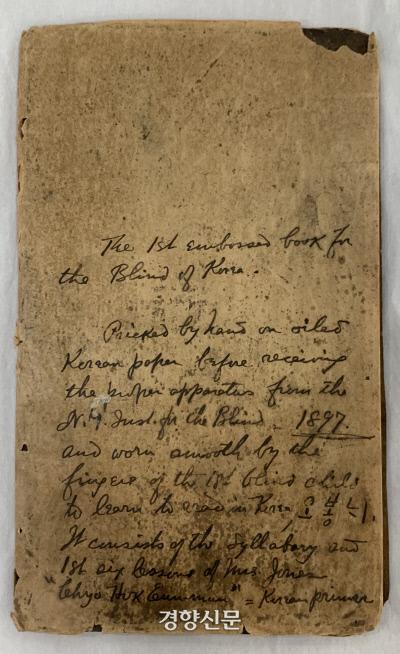 The 1st embossed book for
the Blind of Korea.
Pricked by hand on oiled
Korean paper before receiving
the proper apparatus from the
N.Y. Inst. for the Blind. 1897.
and worn smooth by the
fingers of the 1st blind child
to learn to read in Korea,
It consists of the Syllabary and
1st six lessons of Mrs Jones
= Korean primer
경향신문